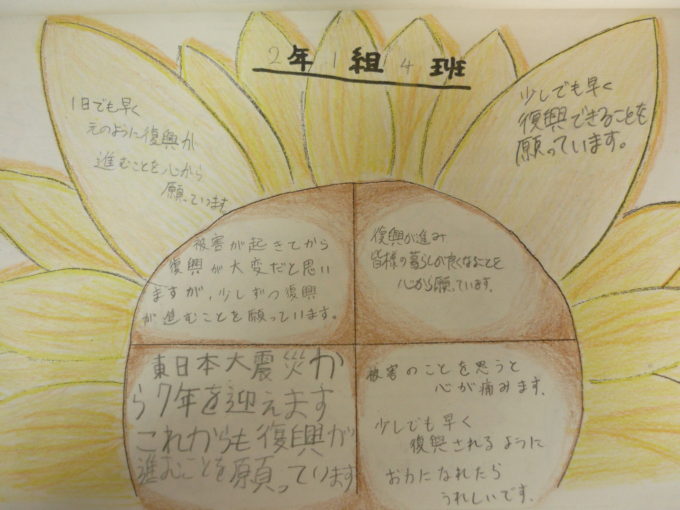 2年1組4班
1日でも早く
元のように復興が
進むことを心から
願っています
少しでも早く
復興できることを
願っています。
被害が起きてから
復興が大変だと思い
ますが、少しずつ復興
が進むことを願っています。
復興が進み
皆様の暮らしが良くなることを
心から願っています。
東日本大震災か
ら7年を迎えます
これからも復興が
進むことを願っています
被害のことを思うと
心が痛みます。
少しでも早く
復興されるように
お力になれたら
うれしいです。